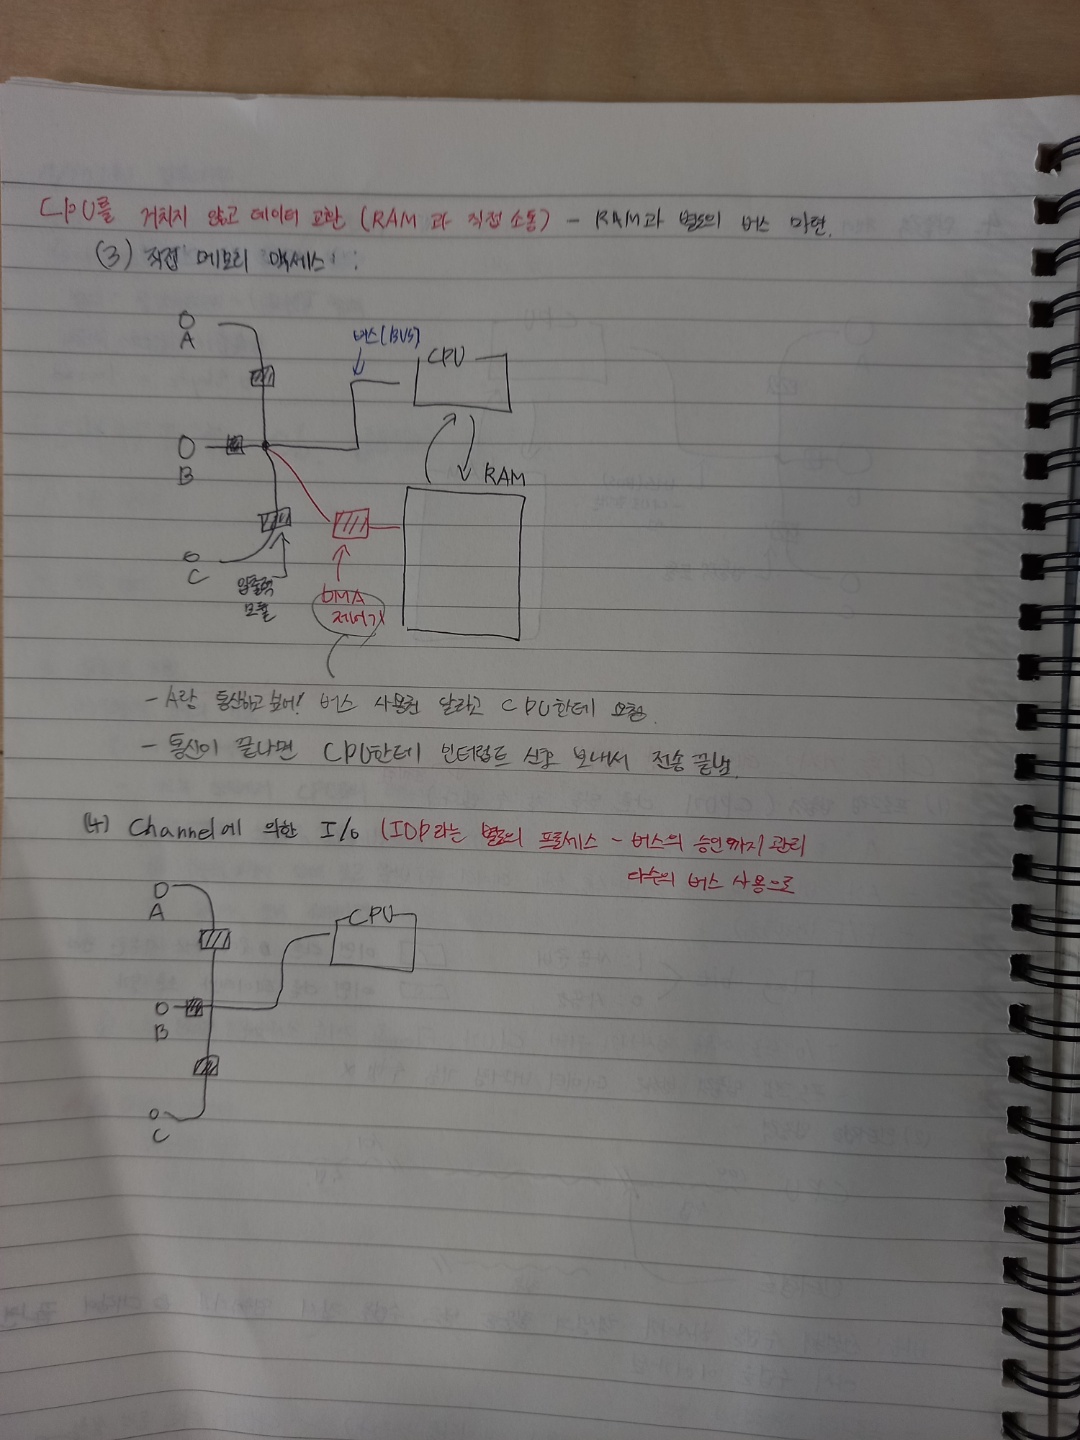 CPU를 거치지 않고 데이터 교환 (RAM과 직접 소통) - RAM과 별도의 버스 마련.
(3) 직접 메모리 액세스 :
A
버스(BUS)
CPU
B
RAM
C
입출력
모듈
DMA
제어기
- A랑 통신하고 싶어! 버스 사용권 달라고 CPU한테 요청.
- 통신이 끝나면 CPU한테 인터럽트 신호 보내서 전송 끝냄.
(4) Channel에 의한 I/O (IOP라는 별도의 프로세스 - 버스의 승인까지 관리
다수의 버스 사용으로
A
CPU
B
C